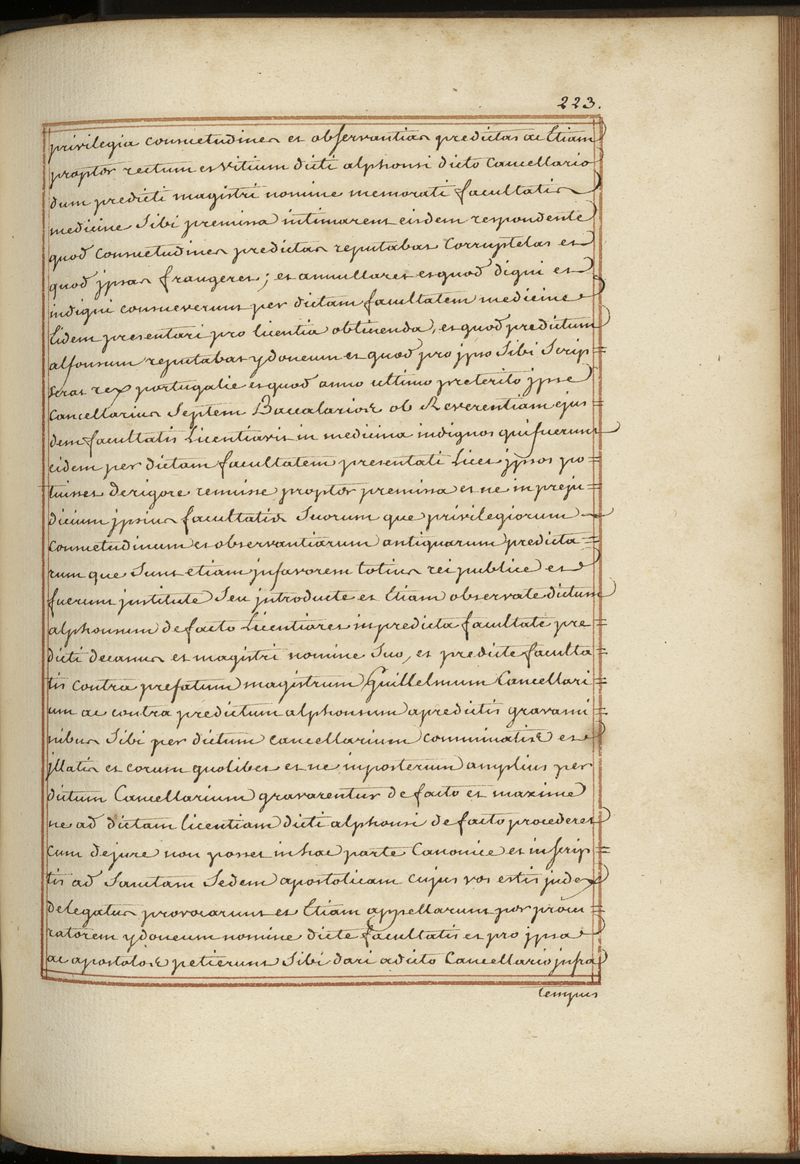 223.
privilegia consuetudines et observantias predictas ac Etiam
propter rectum et Vitium dicti alphonsi dicto Cancellario
dum predicti magistri nomine memorati facultatis
medicine Sibi premissa intimarent eisdem respondente
quod Consuetudines predictas reputabat Corruptelas et
quod jpsas frangeret; et annullaret et quod digni et
indigni consueverunt per dictam facultatem medicine
Eidem presentari pro licentia obtinenda, et quod predictum
alfonsum reputabat ydoneum et quod pro jpso Sibi Scrip=
serat rex portugalie et quod anno ultimo preterito jpse
Cancellarius Septem Bacalarios ob Reverentiam ejus=
dem facultatis Licentiavit in medicina indignos qui fuerunt
eidem per dictam facultatem presentati Licet jpsos po=
tuisset de rigore remisisse propter premissa et ne in preju=
dicium jpsius facultatis Suorum que privilegiorum
Consuetudinum et observantiarum antiquarum predicta=
rum que Sunt etiam in favorem totius rei publice et
fuerunt justitute Seu jntroducte et Etiam observate dictum
alphonsum de facto Licentiaret in predicta facultate pre=
dicti decanus et magistri nomine Suo, et predicte faculta=
tis contra prefatum magistrum Guillelmum Cancellari=
um ac contra predictum alphonsum a predictis gravami=
nibus Sibi per dictum cancellarium comminatis et
jllatis et eorum quolibet et ne in posterum amplius per
dictum Cancellarium gravarentur de facto et maxime
ne ad dictam licentiam dicti alphonsi de facto procederet
cum de jure non posset in hac parte Canonice et in scrip=
tis ad Sanctam Sedem apostolicam cujus vos estis judex
delegatus provocarunt et Etiam appellarunt per procu=
ratorem ydoneum nomine dicte facultatis et pro jpsa
ac apostolos petierunt Sibi dari a dicto Cancellario jnfra
tempus